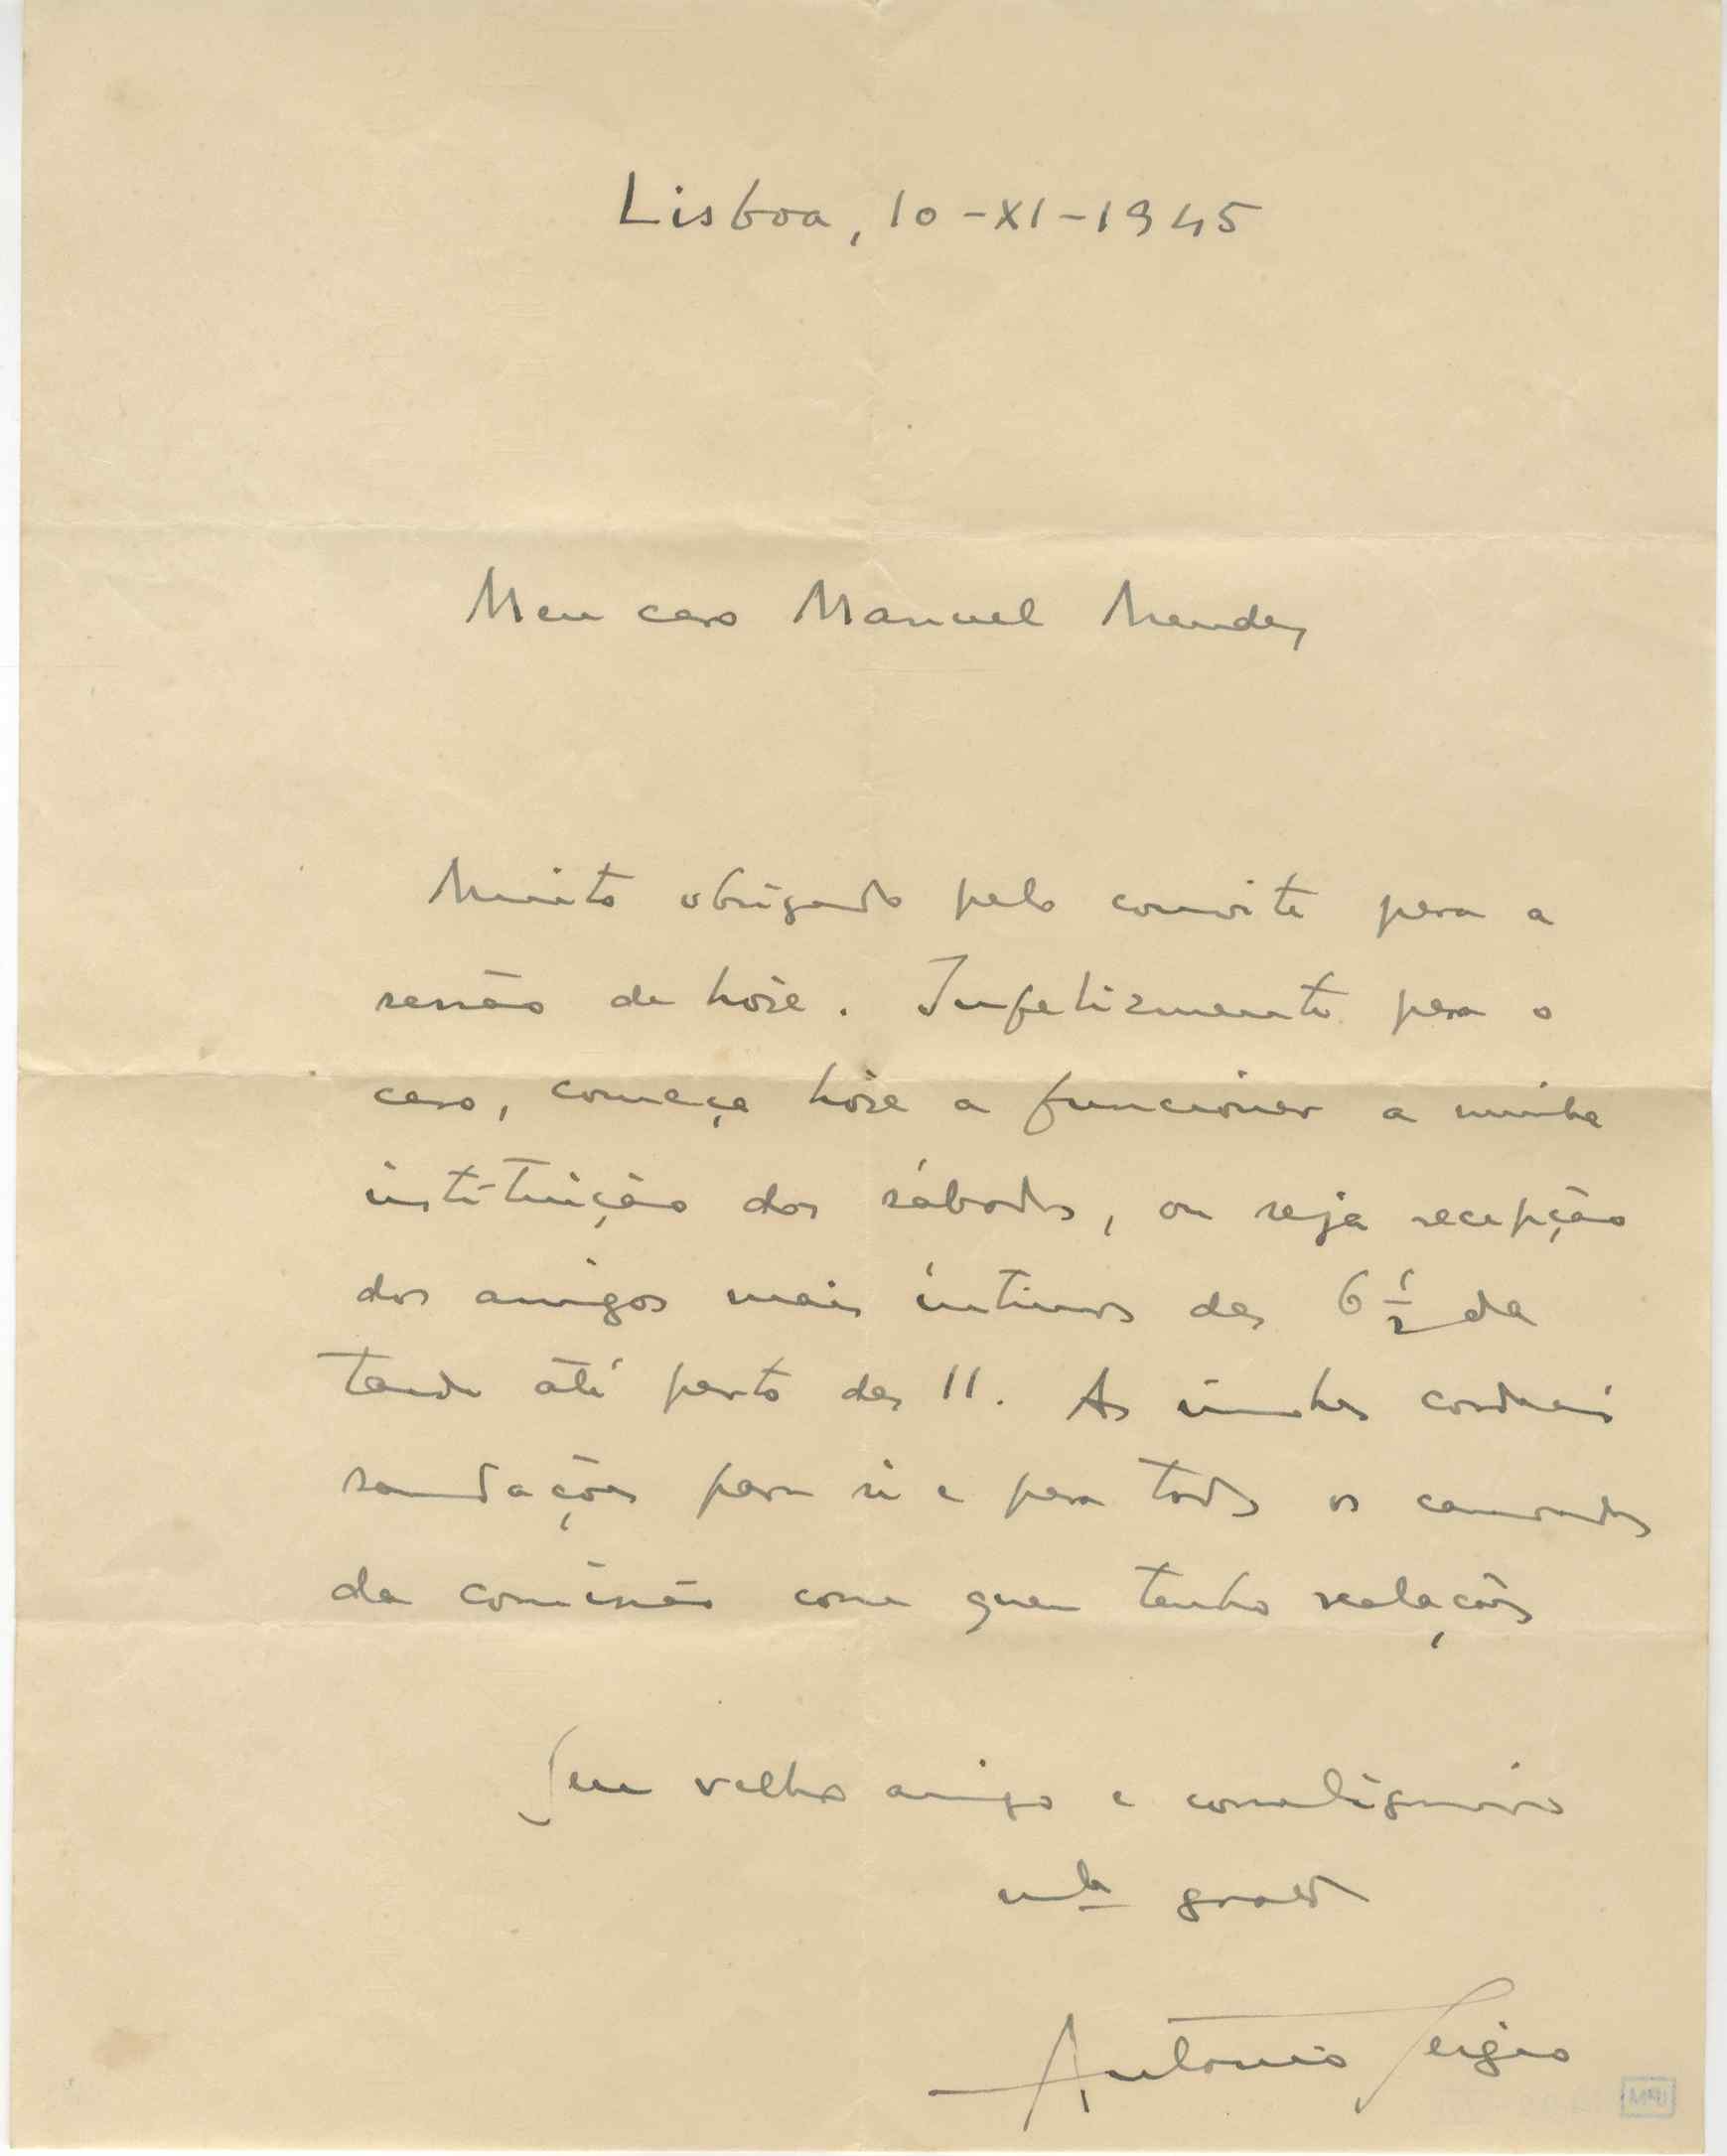 Lisboa, 10-XI-1945
Meu caro Manuel Mendes
Muito obrigado pelo convite para a
sessão de hoje. Infelizmente para o
caso, começa hoje a funcionar a minha
instituição dos sábados, ou seja recepção
dos amigos mais íntimos das 6 1/2 da
tarde até perto das 11. As minhas cordiais
saudações para si e para todos os camaradas
da comissão com quem tenho relações
Seu velho amigo e correligionário
mto grato
António Sérgio